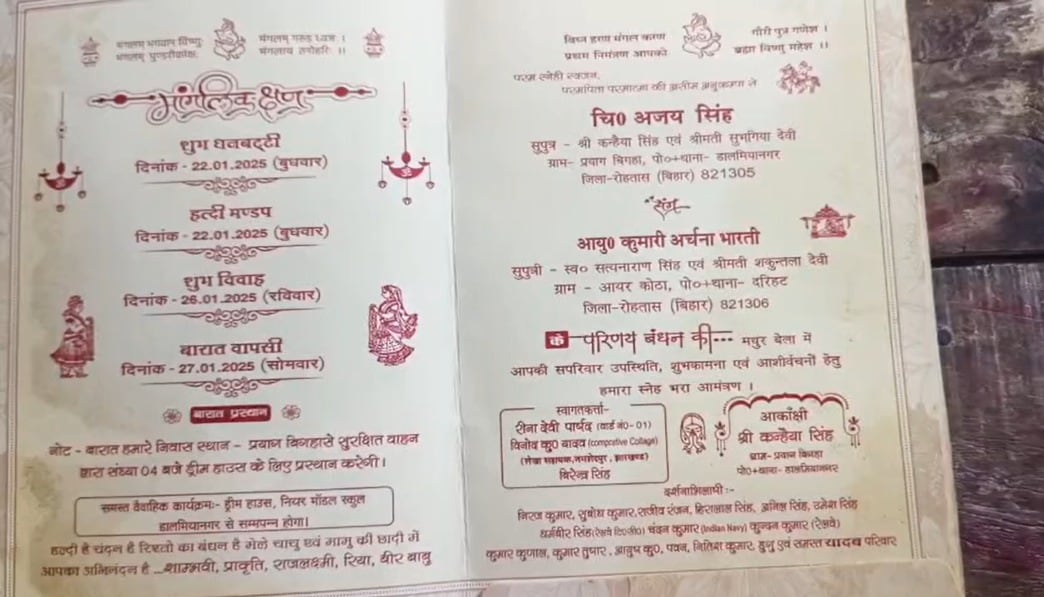 मंगलम् भगवान विष्णु
मंगलम् गरुड़ ध्वज ।
मंगलम् पुण्डरीकाक्षः
मंगलाय तनोहरिः ।।
मांगलिक क्षण
शुभ धनबट्टी
दिनांक - 22.01.2025 (बुधवार)
हल्दी मण्डप
दिनांक - 22.01.2025 (बुधवार)
शुभ विवाह
दिनांक - 26.01.2025 (रविवार)
बारात वापसी
दिनांक - 27.01.2025 (सोमवार)
बारात प्रस्थान
नोट - बारात हमारे निवास स्थान - प्रयाग बिगहासे सुरक्षित वाहन
द्वारा संध्या 04 बजे ड्रीम हाउस के लिए प्रस्थान करेगी।
समस्त वैवाहिक कार्यक्रमः- ड्रीम हाउस, नियर मॉडल स्कूल
डालमियानगर से सम्पन्न होगा।
हल्दी है चंदन है रिश्तो का बंधन है मेले चाचु एवं मामु की छादी में
आपका अभिनंदन है ...शाम्भवी, प्राकृति, राजलक्ष्मी, रिया, वीर बाबु
विघ्न हरण मंगल करण
गौरी पुत्र गणेश ।
प्रथम निमंत्रण आपको
ब्रह्मा विष्णु महेश ।।
परम स्नेही स्वजन,
परमपिता परमात्मा की असीम अनुकम्पा से
चि0 अजय सिंह
सुपुत्र - श्री कन्हैया सिंह एवं श्रीमती सुभगिया देवी
ग्राम- प्रयाग बिगहा, पो०+थाना- डालमियानगर
जिला-रोहतास (बिहार) 821305
संग
आयु0 कुमारी अर्चना भारती
सुपुत्री - स्व० सत्यनाराण सिंह एवं श्रीमती शकुन्तला देवी
ग्राम - आयर कोठा, पो०+थाना- दरिहट
जिला-रोहतास (बिहार) 821306
के परिणय बंधन की--- मधुर बेला में
आपकी सपरिवार उपस्थिति, शुभकामना एवं आशीर्वचनों हेतु
हमारा स्नेह भरा आमंत्रण ।
स्वागतकर्ता-
रीना देवी पार्षद (वार्ड नं०- 01)
विनोद कु0 यादव (comprative Collage)
(लेखा सहायक,जमशेदपुर, झारखण्ड)
बिरेन्द्र सिंह
आकाँक्षी
श्री कन्हैया सिंह
ग्राम- प्रयाग बिगहा
पो०+थाना- डालमियानगर
दर्शनाभिलाषी :-
निरज कुमार, सुबोध कुमार,राजीव रंजन, हिरालाल सिंह, अनिल सिंह, उमेश सिंह
धर्मबीर सिंह(रेलवे टि0सी0) चंदन कुमार(Indian Navy) कुन्दन कुमार (रेलवे)
कुमार कुणाल, कुमार तुषार, आयुष कु0, पवन, नितिश कुमार, डुलु एवं समस्त यादव परिवार